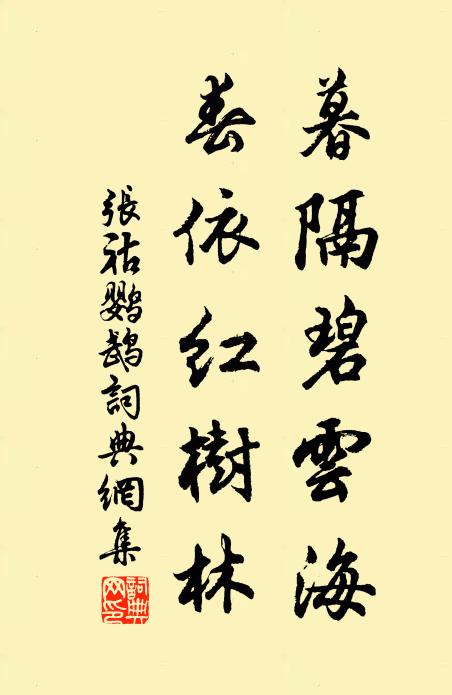 暮隔碧雲海
春依紅樹林
張祜鸚鵡詞典網集
詞典网印